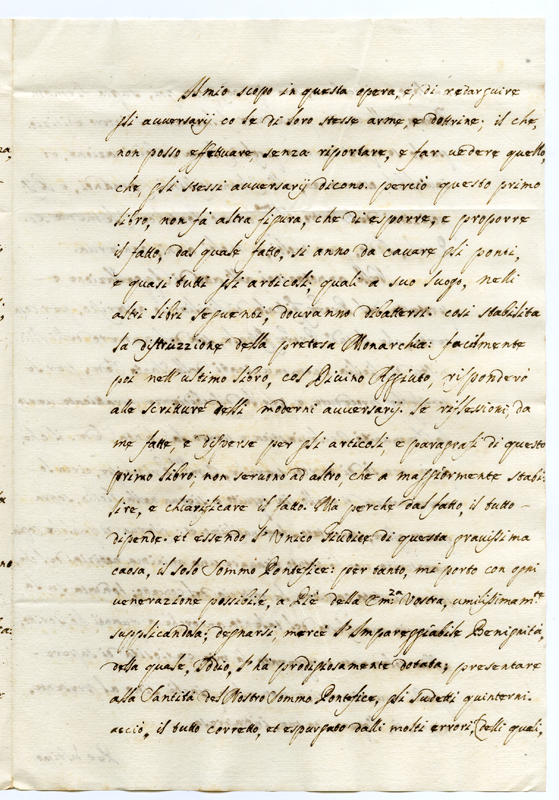 Il mio scopo in questa opera, è, di redarguire
gli avversarij co le di loro stesse arme, e dottrine; il che,
non posso effetuare senza riportare, e far vedere quello,
che, gli stessi avversarij dicono. perciò questo primo
libro, non fà altra figura, che di esporre, e proporre
il fatto, dal quale fatto, si anno da cavare gli ponti,
e quasi tutti gli articoli, quali a suo luogo, nelli
altri libri seguenti, dovranno dibattersi. così stabilita
la distruzzione della pretesa Monarchia: facilmente
poi nell'ultimo libro, col Divino Aggiuto, risponderò
alle scritture delli moderni avversarij. le riflessioni, da
me fatte, e disperse per gli articoli, e paragrafi di questo
primo libro: non servono ad altro, che a maggiormente stabi-
lire, e chiarificare il fatto. Ma perche dal fatto, il tutto
dipende. et essendo l'Unico Giudice di questa gravissima
caosa, il solo Sommo Pontefice: per tanto, mi porto con ogni
venerazione possibile, a Piè della Em.za Vostra, umilissimam.te
supplicandola; degnarsi, mercè l'Impareggiabile Benignità,
della quale, Iddio, l'hà prodigiosamente dotata; presentare
alla Santità del Nostro Sommo Pontefice, gli sudetti quinterni.
acciò, il tutto corretto, et espurgato dalli molti errori, delli quali,